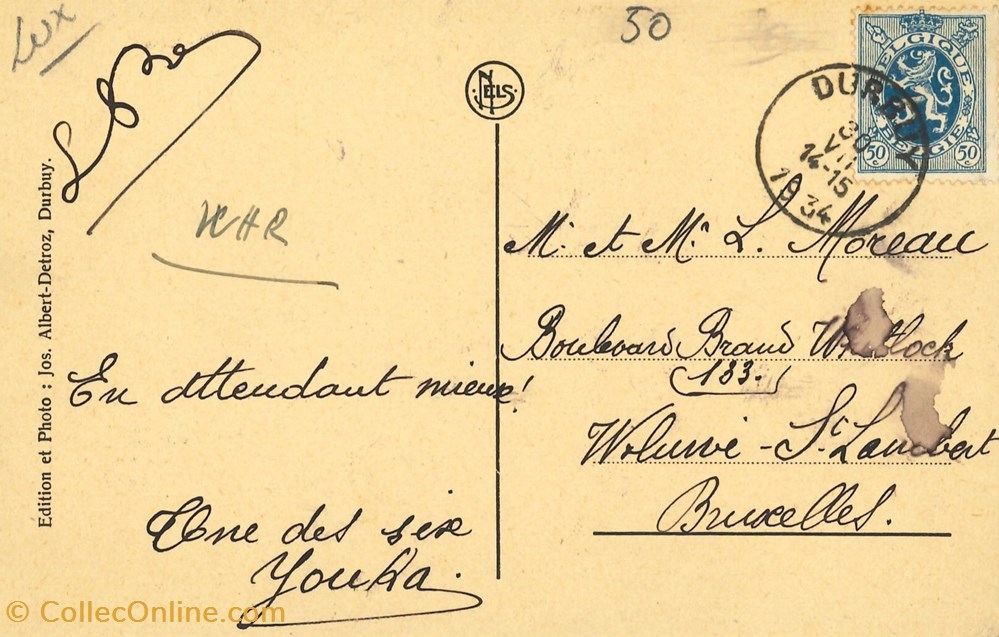 Lux
50
NELS
BELGIQUE
BELGIË
50 c 50 c
DURBUY
14-15
1934
Edition et Photo : Jos. Albert-Detroz, Durbuy.
En attendant mieux!
Une des six
Youka.
Mr et Me L. Moreau
Boulevard Brand Whitlock
133.
Woluwé-St Lambert
Bruxelles.
© CollecOnline.com